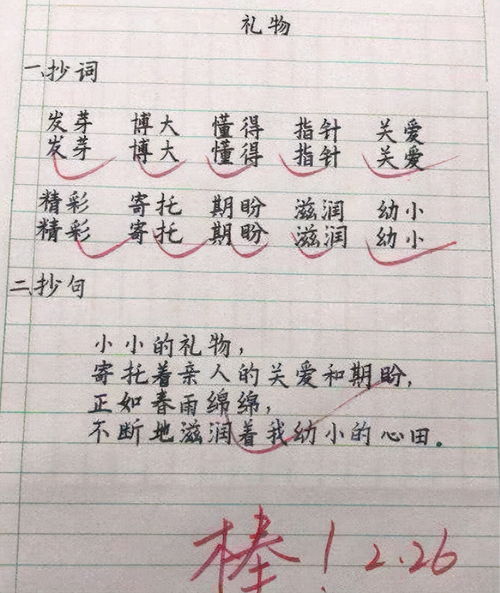 礼物
一、抄词
发芽 博大 懂得 指针 关爱
发芽 博大 懂得 指针 关爱
精彩 寄托 期盼 滋润 幼小
精彩 寄托 期盼 滋润 幼小
二、抄句
小小的礼物，
寄托着亲人的关爱和期盼，
正如春雨绵绵，
不断地滋润着我幼小的心田。
棒！2.26